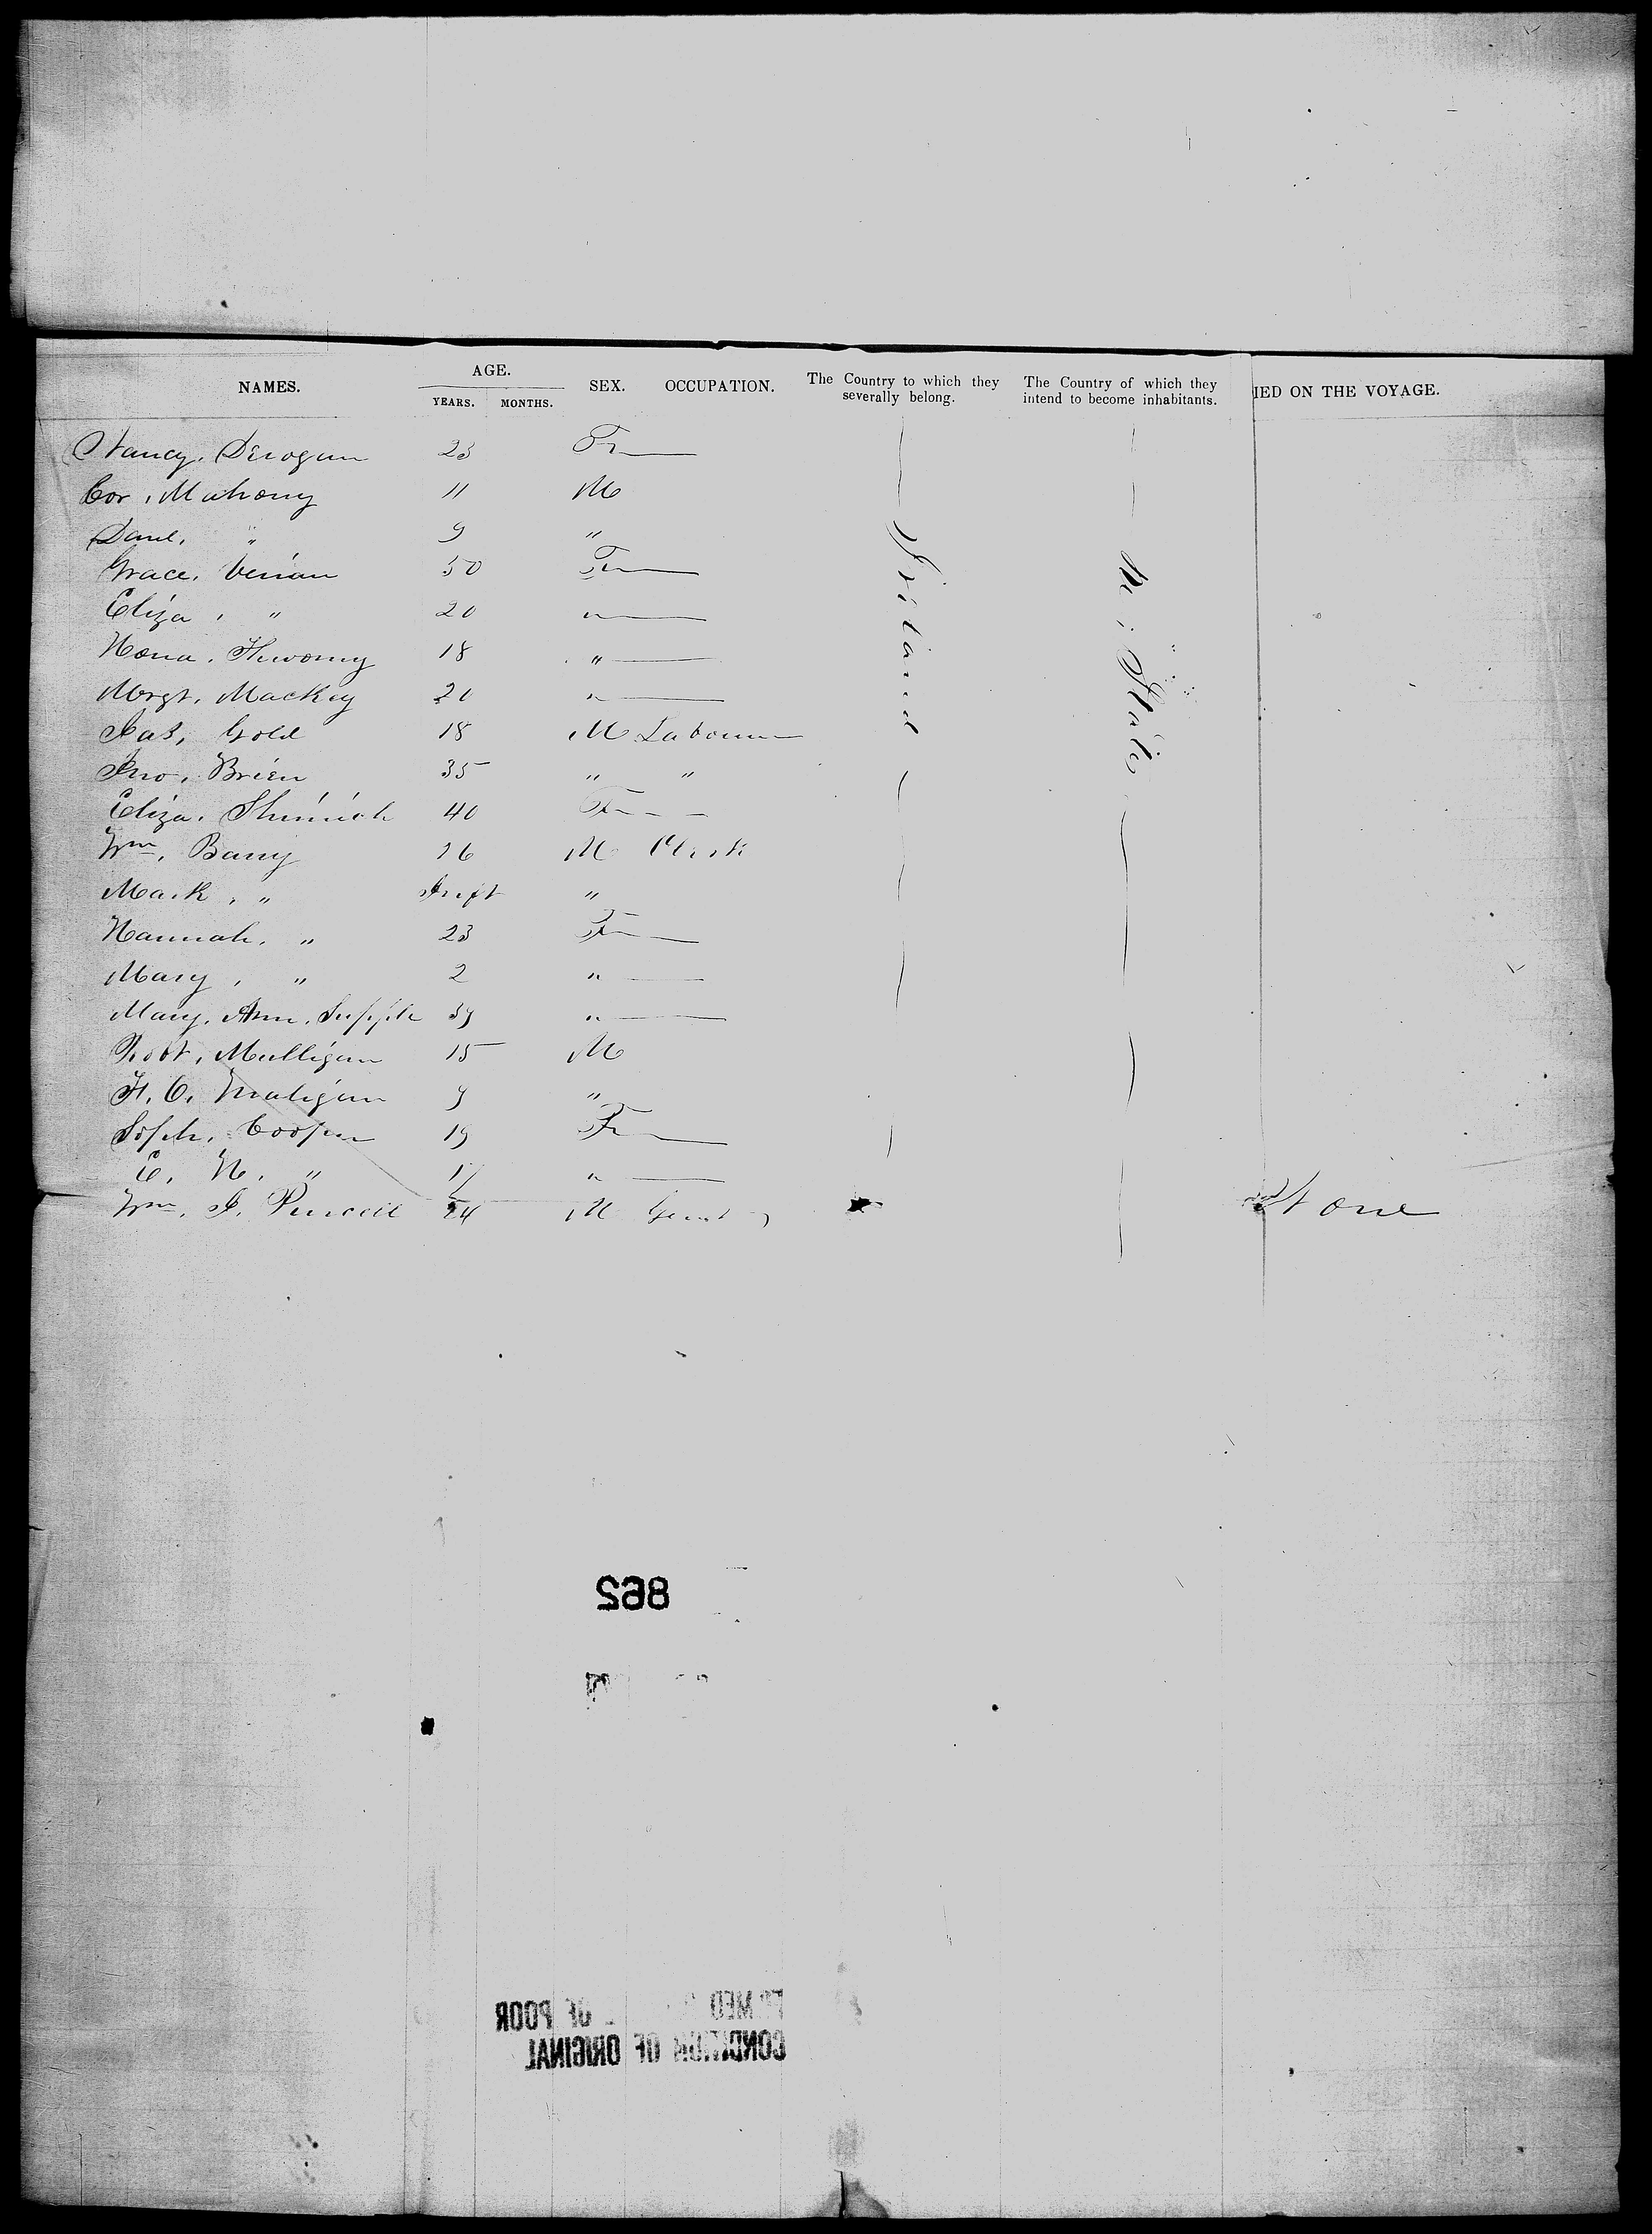 NAMES. AGE. YEARS. MONTHS. SEX. OCCUPATION. The Country to which they severally belong. The Country of which they intend to become inhabitants. IED ON THE VOYAGE.
Nancy. Derogan 23 Fm
Cor, Mahony 11 M
Danl, " 9 "
Grace, 50 Fm
Eliza, " 20 "
Hona. 18 "
Mrgt, Mackey 20 "
Pat, Gold 18 M Labourer
Jno, Brien 35 " "
Eliza. 40 Fm
Wm, Barry 26 M Clerk
Mark, " Inft "
Hannah, " 23 Fm
Mary, " 2 "
Mary, Ann, Supple 39 "
Robt, Mulligan 15 M
H. C. Mulligan 9 "
Soph, Cooper 19 Fm
E. H. " 17 "
Wm. J. Purcell 24 M
Ireland
U. States
None
862
CONDITION OF ORIGINAL